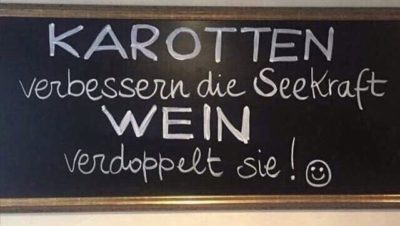 KAROTTEN
verbessern die SeeKraft
WEIN
verdoppelt sie! ☺